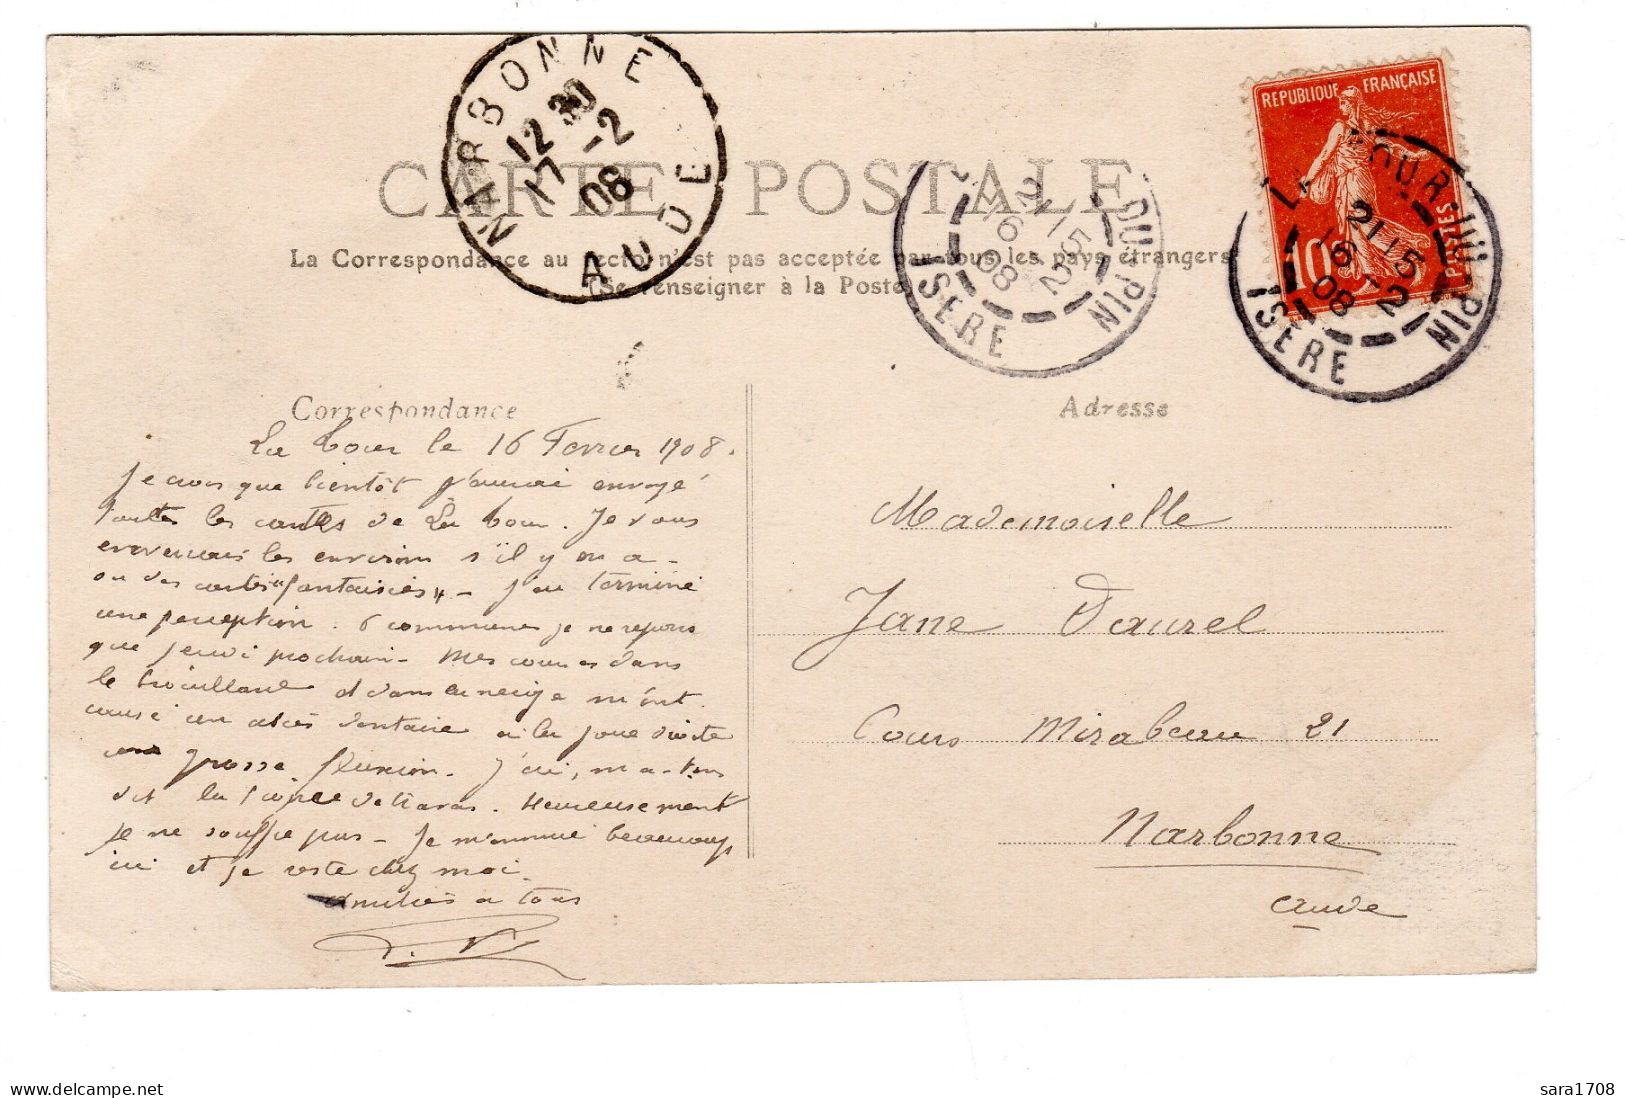 NARBONNE
12 30
17 -2
08
AUDE
CARTE POSTALE
La Correspondance au recto n'est pas acceptée par tous les pays étrangers
(Se renseigner à la Poste)
REPUBLIQUE FRANÇAISE
10
POSTES
DU-PIN
21 15
16 -2
08
ISERE
LA TOUR-DU-PIN
21 15
16 -2
08
ISERE
Correspondance
Adresse
La Tour le 16 Fevrier 1908.
Je crois que bientôt j'aurai envoyé
toutes les cartes de La Tour. Je vous
enverrais les environs s'il y en a -
ou des cartes "fantaisies" - J'ai terminé
une perception. 6 communes je ne repars
que jeudi prochain - Mes courses dans
le brouillard et dans la neige m'ont
causé un abcès dentaire à la joue droite
une grosse fluxion. J'ai, m'a-t-on
dit la . Heureusement
je ne souffre pas - Je m'ennuie beaucoup
ici et je reste chez moi.
Amitiés a tous
Mademoiselle
Jane Daurel
Cours Mirabeau 21
Narbonne
Aude
sara1708